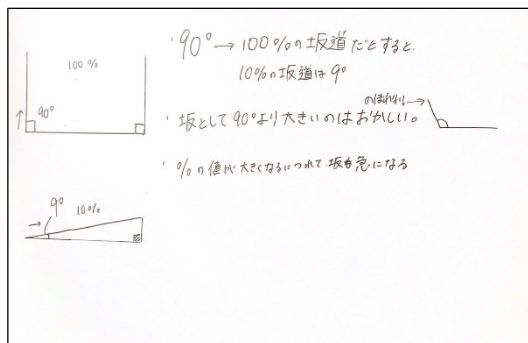 100%
90°
9°
10%
・90°→100%の坂道だとすると
10%の坂道は9°
・坂として90°より大きいのはおかしい。
のぼれない→
・%の値が大きくなるにつれて坂も急になる